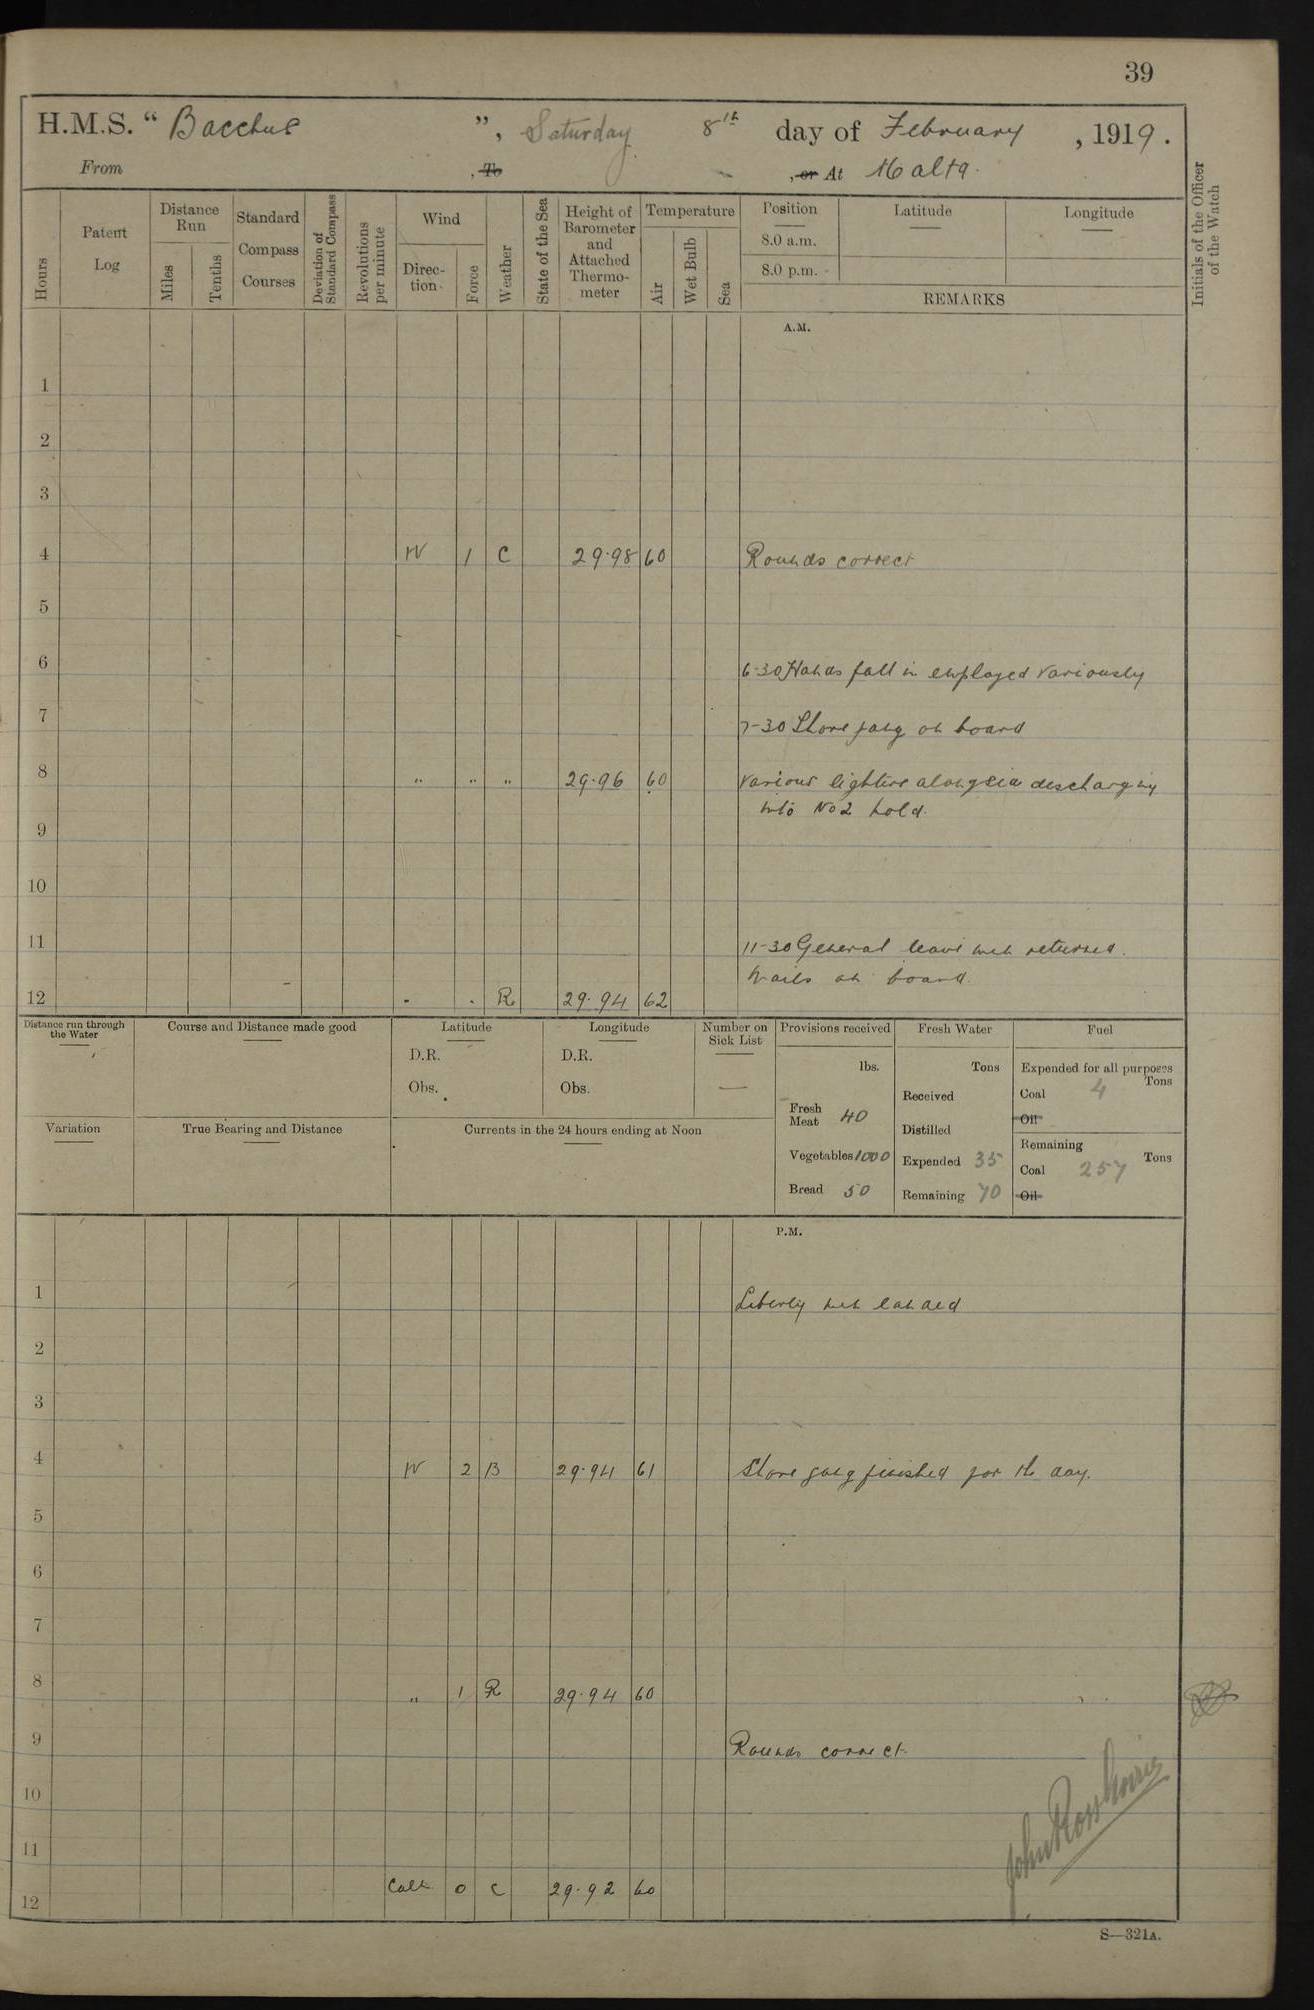 39
H.M.S. " Bacchus ", Saturday 8th day of February, 1919.
From , To , or At Malta.
Hours
Patent Log
Distance Run
Miles
Tenths
Standard Compass Courses
Deviation of Standard Compass
Revolutions per minute
Wind
Direction
Force
Weather
State of the Sea
Height of Barometer and Attached Thermometer
Temperature
Air
Wet Bulb
Sea
Position
Latitude
Longitude
8.0 a.m.
8.0 p.m.
REMARKS
Initials of the Officer of the Watch
A.M.
1
2
3
4 W 1 C 29.98 60 Rounds correct
5
6 6-30 Hands fall in employed variously
7 7-30 Shore gang on board
8 " " " 29.96 60 Various lighters alongside discharging
into No 2 hold.
9
10
11 11-30 General leave men returned.
Mails on board.
12 " " R 29.94 62
Distance run through the Water
Course and Distance made good
Latitude
D.R.
Obs.
Longitude
D.R.
Obs.
Number on Sick List
—
Provisions received
lbs.
Fresh Meat 40
Vegetables 1000
Bread 50
Fresh Water
Tons
Received
Distilled
Expended 35
Remaining 70
Fuel
Expended for all purposes
Tons
Coal 4
Oil
Remaining
Tons
Coal 257
Oil
Variation
True Bearing and Distance
Currents in the 24 hours ending at Noon
P.M.
1 Liberty men landed
2
3
4 W 2 B 29.94 61 Shore gang finished for the day.
5
6
7
8 " 1 R 29.94 60
9 Rounds correct.
10
11
12 Calm 0 C 29.92 60
S—321A.